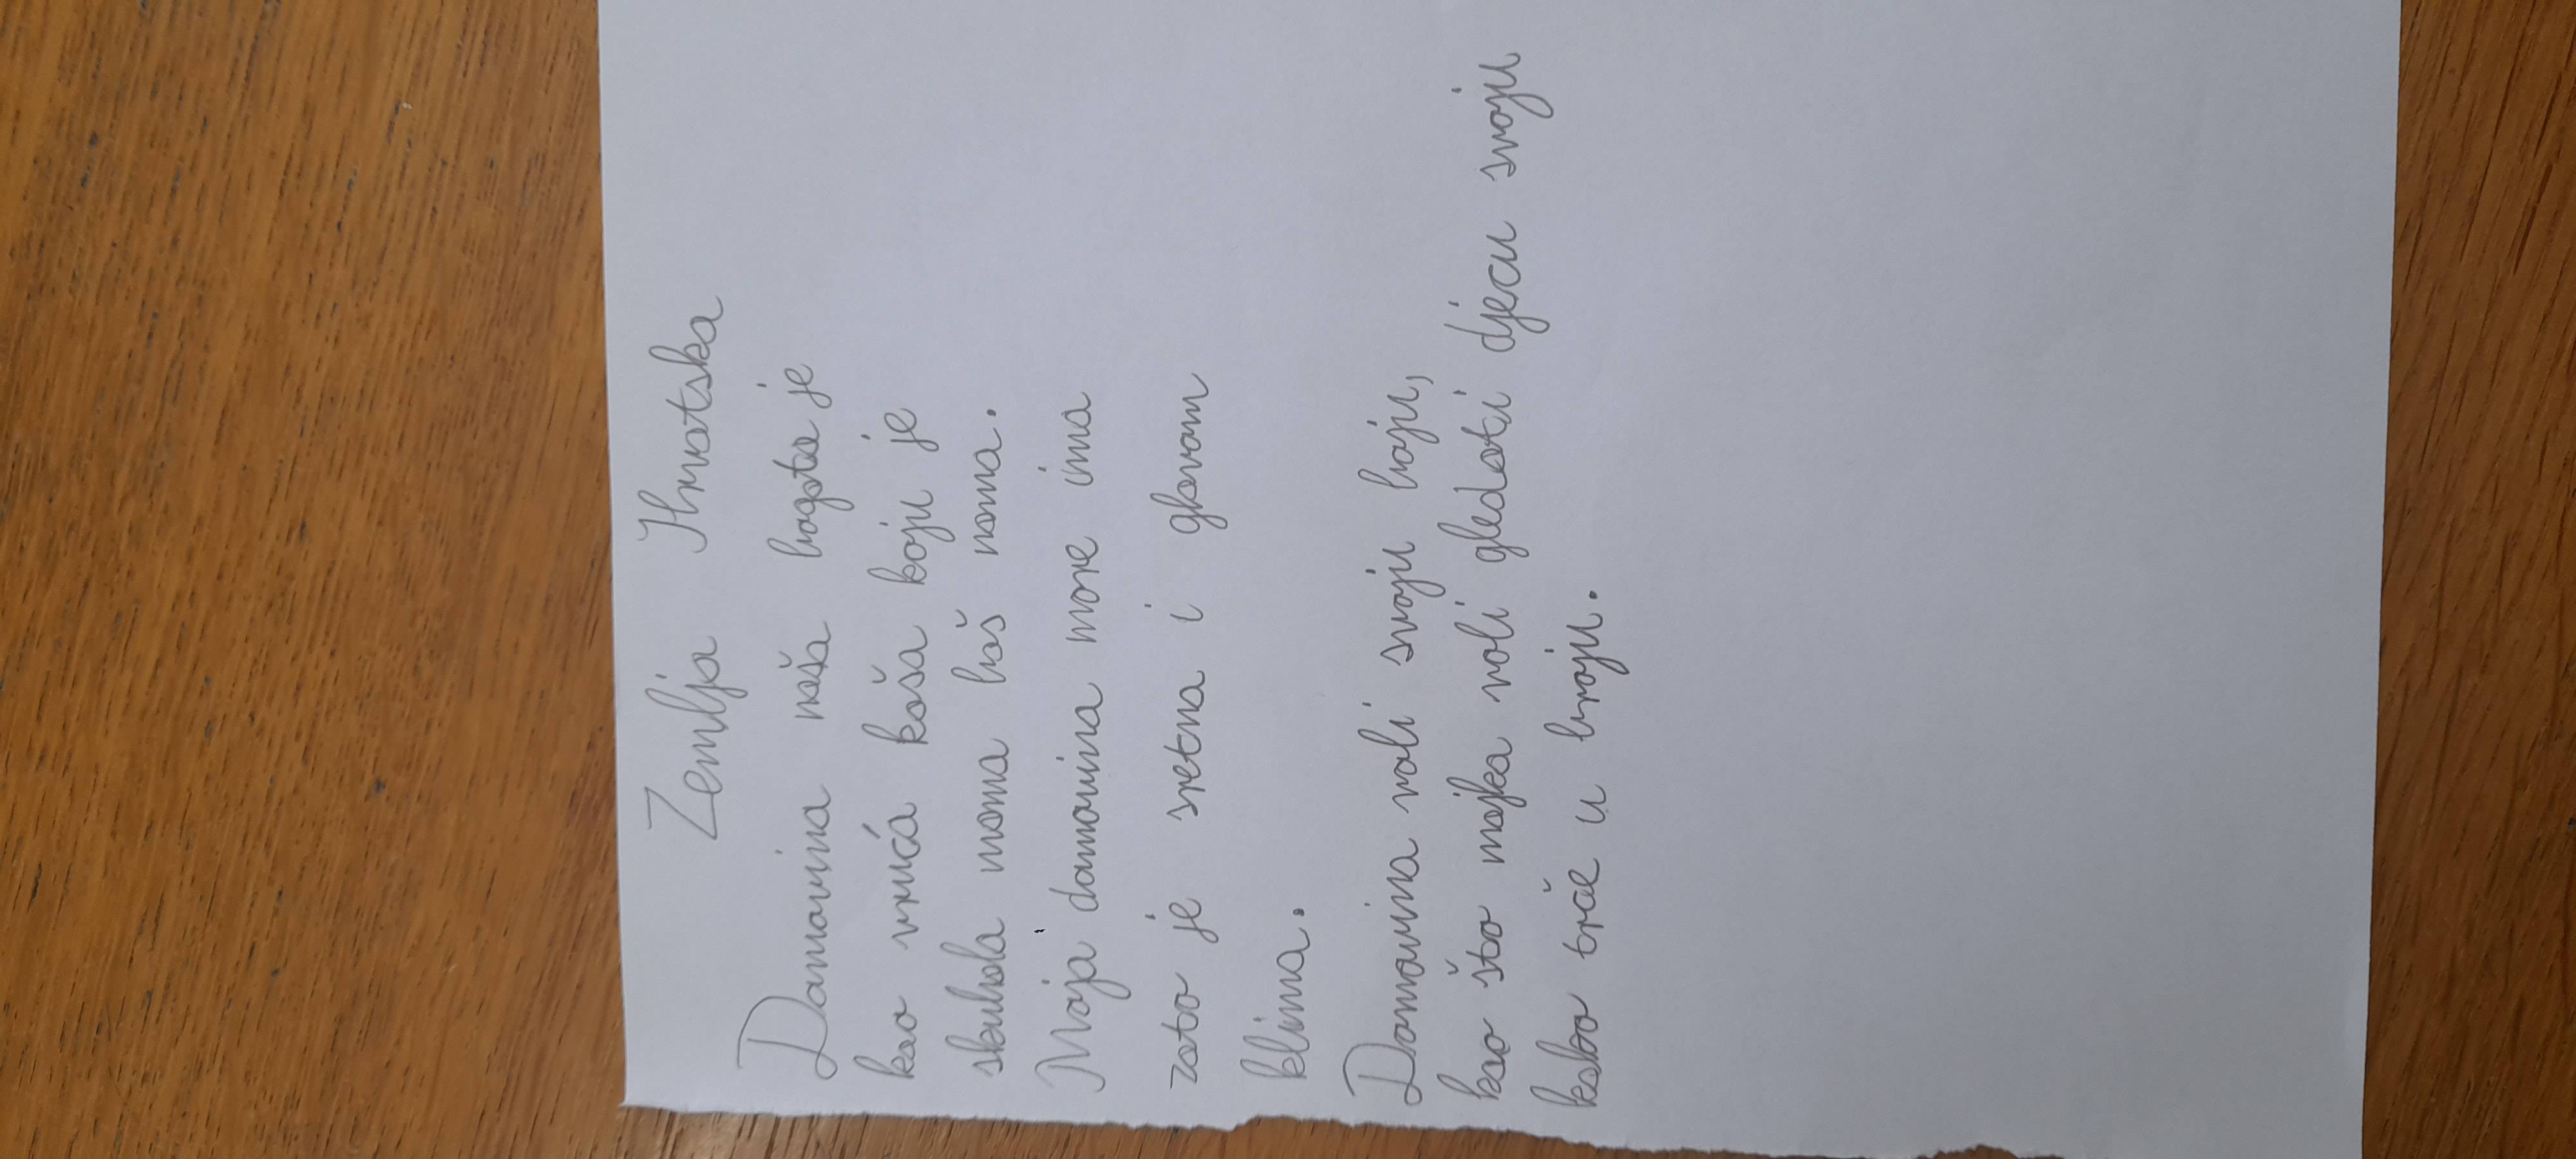 Zemlja Hrvatska
Domovina naša bogata je
kao vruća kaša koju je
skuhala mama baš nama.
Moja domovina more ima
zato je sretna i glavom
klima.
Domovina voli svoju boju,
kao što majka voli gledati djecu svoju
kako trče u broju.